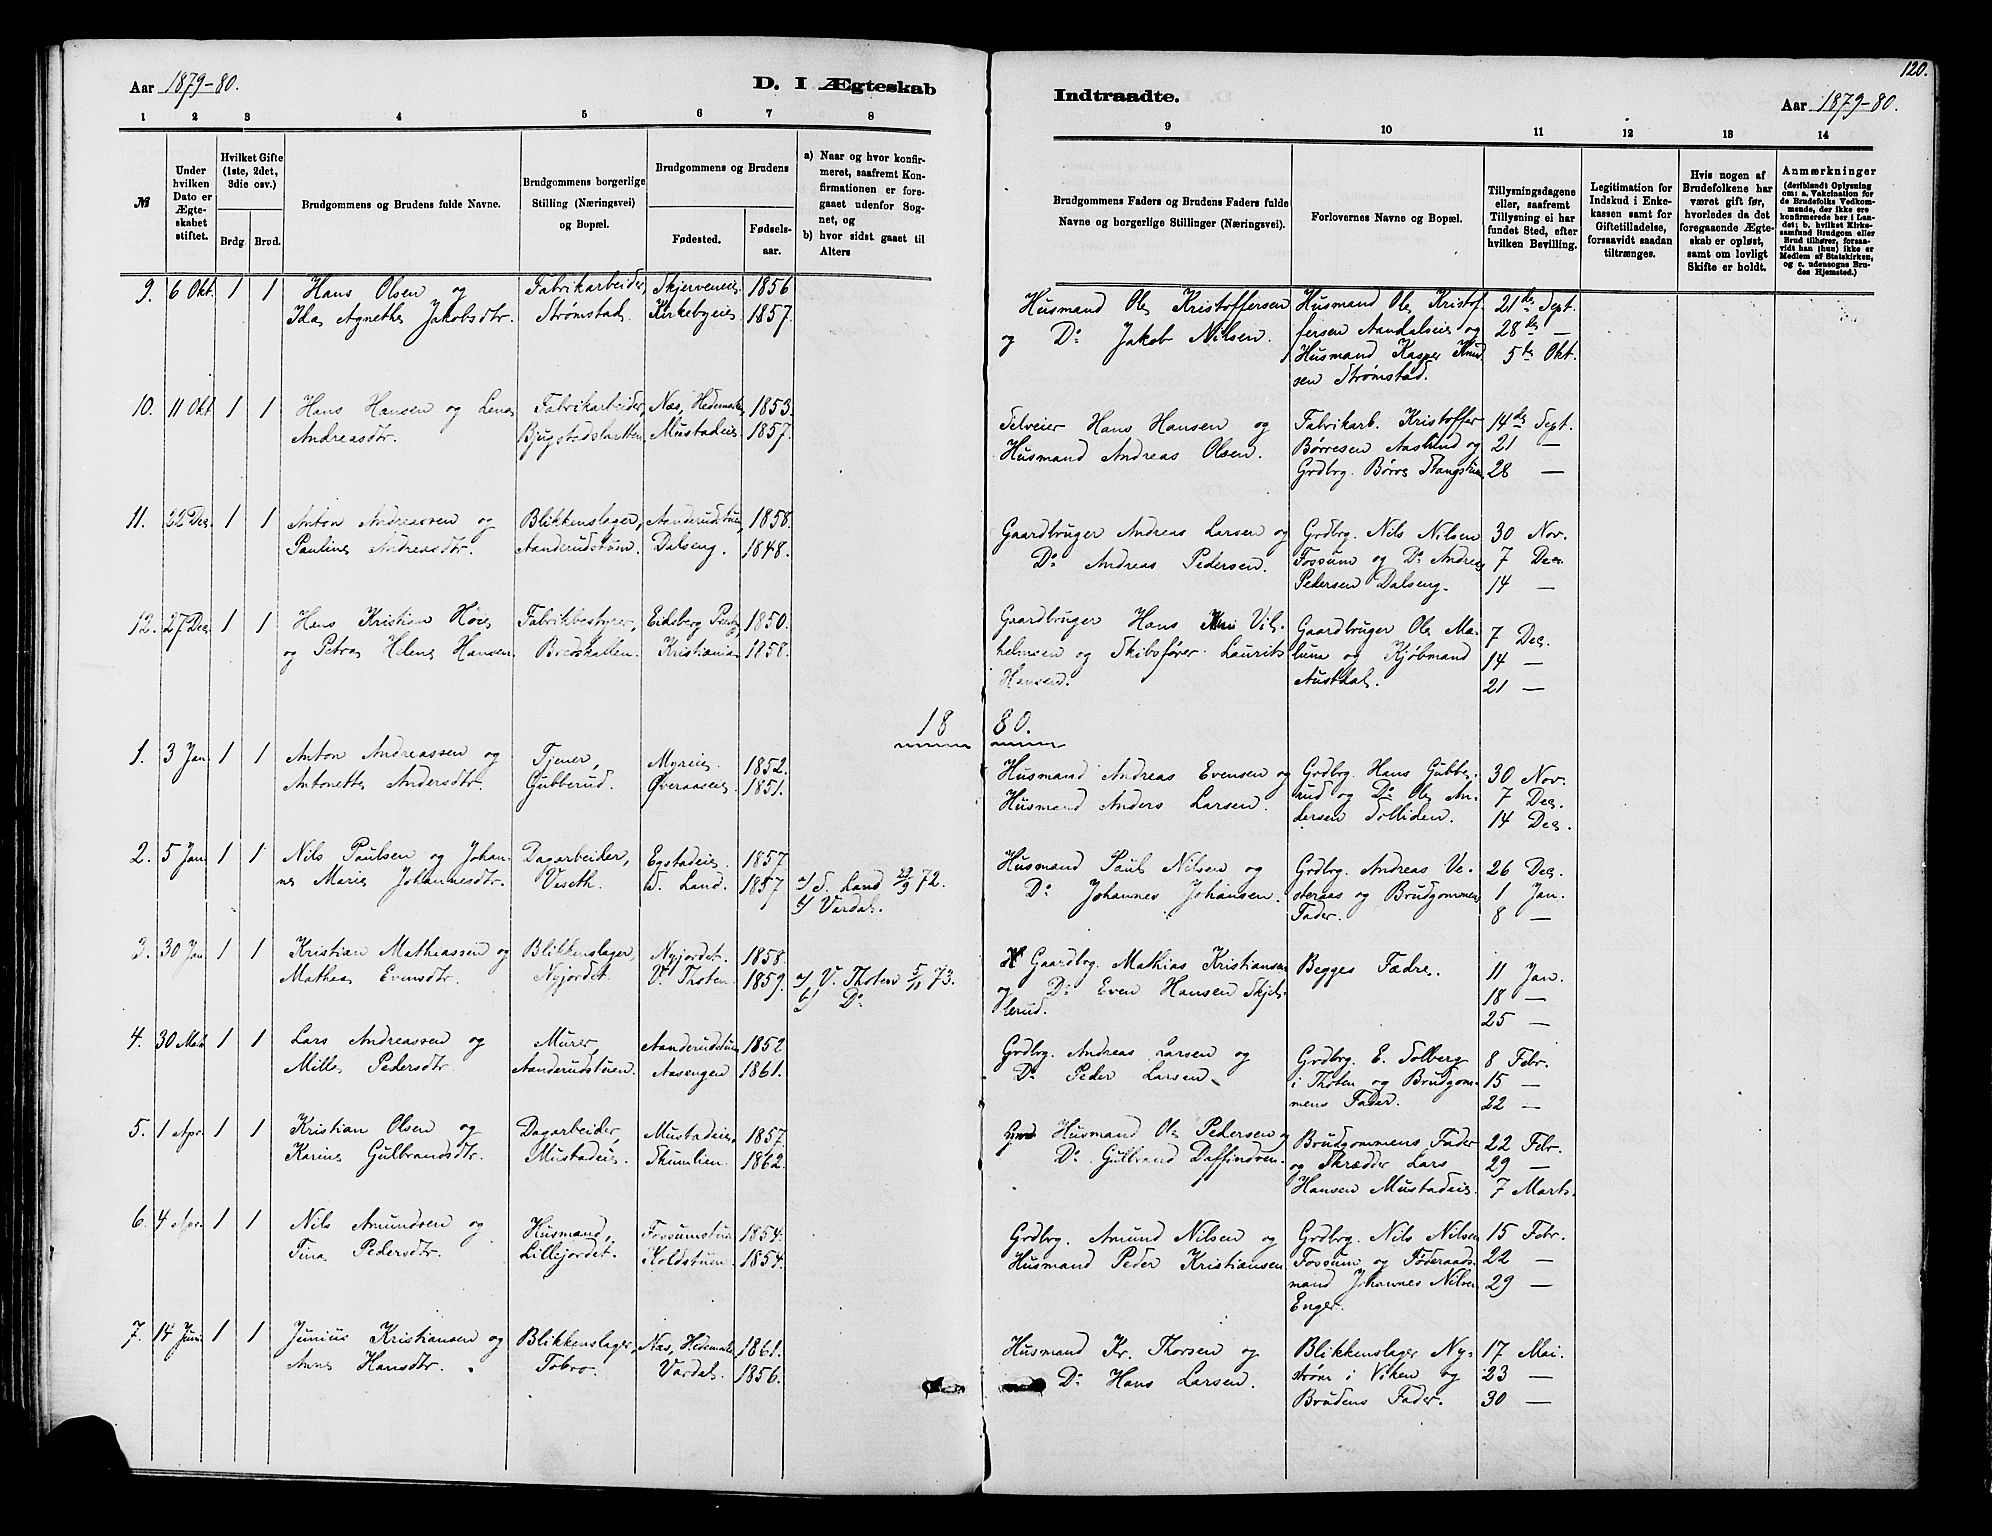 120.
Aar 1879-80.
D. I Ægteskab
Indtraadte.
Aar 1879-80.
1 2 3 4 5 6 7 8
9 10 11 12 13 14
№
Under hvilken Dato er Ægteskabet stiftet.
Hvilket Gifte (1ste, 2det, 3die osv.)
Brdg. Brud.
Brudgommens og Brudens fulde Navne.
Brudgommens borgerlige Stilling (Næringsvei) og Bopæl.
Brudgommens og Brudens
Fødested.
Fødsels-aar.
a) Naar og hvor konfirmeret, saafremt Konfirmationen er foregaaet udenfor Sognet, og
b) hvor sidst gaaet til Alters
Brudgommens Faders og Brudens Faders fulde Navne og borgerlige Stillinger (Næringsvei).
Forlovernes Navne og Bopæl.
Tillysningsdagene eller, saafremt Tillysning ei har fundet Sted, efter hvilken Bevilling.
Legitimation for Indskud i Enkekassen samt for Giftetilladelse, forsaavidt saadan tiltrænges.
Hvis nogen af Brudefolkene har været gift før, hvorledes da det foregaaende Ægteskab er opløst, samt om lovligt Skifte er holdt.
Anmærkninger
(deriblandt Oplysning om: a. Vakcination for de Brudefolks Vedkommende, der ikke ere konfirmerede her i Landet; b. hvilket Kirkesamfund Brudgom eller Brud tilhører, forsaavidt han (hun) ikke er Medlem af Statskirken, og c. udensogns Brudes Hjemsted.)
9. 6 Okt. 1 1 Hans Olsen og Fabrikarbeider, Skjerveneie. 1856
Ida Agnethe Jakobsdtr. Strømstad. Kirkebyeie. 1857.
Husmand Ole Kristoffersen Husmand Ole Kristof- 21de Sept.
og Do Jakob Nilsen. fersen Aandalseie og 28de —
Husmand Kasper Knud 5te Okt.
sen Strømstad.
10. 11 Okt 1 1 Hans Hansen og Lena Fabrikarbeider, Næs, Hedemarken 1853.
Andreasdtr. Mustadeie 1857.
Selveier Hans Hansen og Fabrikarb. Kristoffer 14de Sept.
Husmand Andreas Olsen. Børresen Aaslund og 21 —
Grdbrg. Børre Stangstuen 28 —
11. 22 Dec. 1 1 Anton Andreassen og Blikkenslager, Aanderudstuen, 1858.
Pauline Andreasdtr. Aanderudstuen. Dalseng. 1848.
Gaardbruger Andreas Larsen og Grdbrg. Nils Nilsen 30 Nov.
Do Andreas Pedersen. Fossum og Do Andreas 7 Dec.
Pedersen Dalseng. 14 —
12. 27 Dec. 1 1 Hans Kristian Høie Fabrikbestyrer, Eidsberg 1850.
og Petra Helene Hansen Breiskallen. Kristiania 1858.
Gaardbruger Hans Vil- Gaardbruger Ole Mæ- 7 Dec.
helmsen og Skibsfører Laurits lum og Kjøbmand 14 —
Hansen. Austdal. 21 —
1880.
1. 3 Jan 1 1 Anton Andreassen og Tjener, Myreie. 1852.
Antonette Andersdtr. Gubberud. Øveraaseie. 1851.
Husmand Andreas Evensen og Grdbrg. Hans Gubbe- 30 Nov.
Husmand Anders Larsen. rud og Do Ole An- 7 Dec.
dersen Solliden. 14 Dec.
2. 5 Jan 1 1 Nils Paulsen og Johan- Dagarbeider, Egstadeie. 1857
ne Marie Johannesdtr. Veseth. S. Land. 1857 a/ S. Land 29/9 72.
b/ Vardal.
Husmand Paul Nilsen og Grdbrg. Andreas Ve- 26 Dec.
Do Johannes Johansen. steraas og Brudgommens 1 Jan.
Fader. 8 —
3. 30 Jan 1 1 Kristian Mathiassen og Blikkenslager, Nyjordet. 1858.
Mathea Evensdtr. Nyjordet. V. Thoten. 1859. a/ V. Thoten 5/11 73.
b/ Do
Gaardbrg. Mathias Kristiansen Begges Fædre. 11 Jan.
og Do Even Hansen Skjel- 18 —
lerud. 25 —
4. 30 Mars 1 1 Lars Andreassen og Murer, Aanderudstuen 1852
Mille Pedersdtr. Aanderudstuen. Aasengen 1861.
Grdbrg. Andreas Larsen og Grdbrg. E. Solberg 8 Febr.
Do Peder Larsen. i Thoten og Brudgom- 15 —
mens Fader. 22 —
5. 1 Apr. 1 1 Kristian Olsen og Dagarbeider, Mustadeie. 1857.
Karine Gulbrandsdtr. Mustadeie. Skumlien. 1862.
Husmand Ole Pedersen og Brudgommens Fader 22 Febr.
Do Gulbrand Daffindsen. og Skrædder Lars 29 —
Hansen Mustadeie. 7 Marts.
6. 4 Apr. 1 1 Nils Amundsen og Husmand, Fossumstuen 1854.
Tina Pedersdtr. Lillejordet. Koldstuen. 1854.
Grdbrg. Amund Nilsen og Grdbrg. Nils Nilsen 15 Febr.
Husmand Peder Kristiansen Fossum og Føderaads- 22 —
mand Johannes Nilsen 29 —
Enger.
7. 14 Juni 1 1 Junius Kristiansen og Blikkenslager, Næs, Hedemarken 1861.
Anne Hansdtr. Tobro. Vardal. 1856.
Husmand Kr. Thorsen og Blikkenslager Ny- 17 Mai.
Do Hans Larsen. strøm i Viken og 23 —
Brudens Fader. 30 —